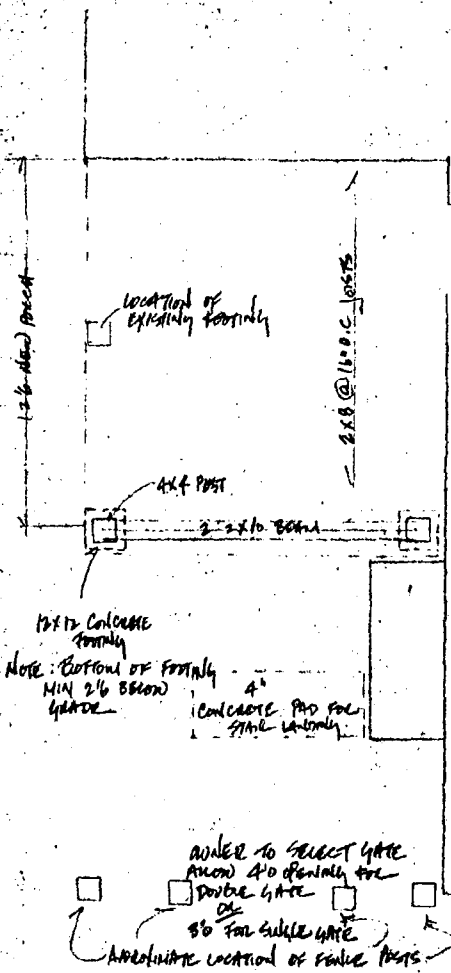 12'6 NEW PORCH
LOCATION OF
EXISTING FOOTING
2X8 @ 16" O.C JOISTS
4X4 POST
2-2X10 BEAM
12X12 CONCRETE
FOOTING
NOTE: BOTTOM OF FOOTING
MIN 2'6 BELOW
GRADE
4"
CONCRETE PAD FOR
STAIR LANDING
OWNER TO SELECT GATE
ALLOW 4'0 OPENING FOR
DOUBLE GATE
OR
3'0 FOR SINGLE GATE
APPROXIMATE LOCATION OF FENCE POSTS